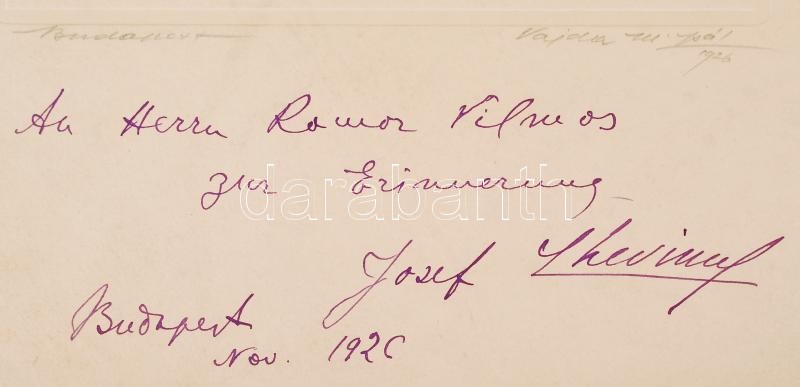 Budapest Vajda M. Pál
1926
An Herrn Ramor Vilmos
zur Erinnerung
darabanth
Josef Lhevinne
Budapest
Nov. 1926